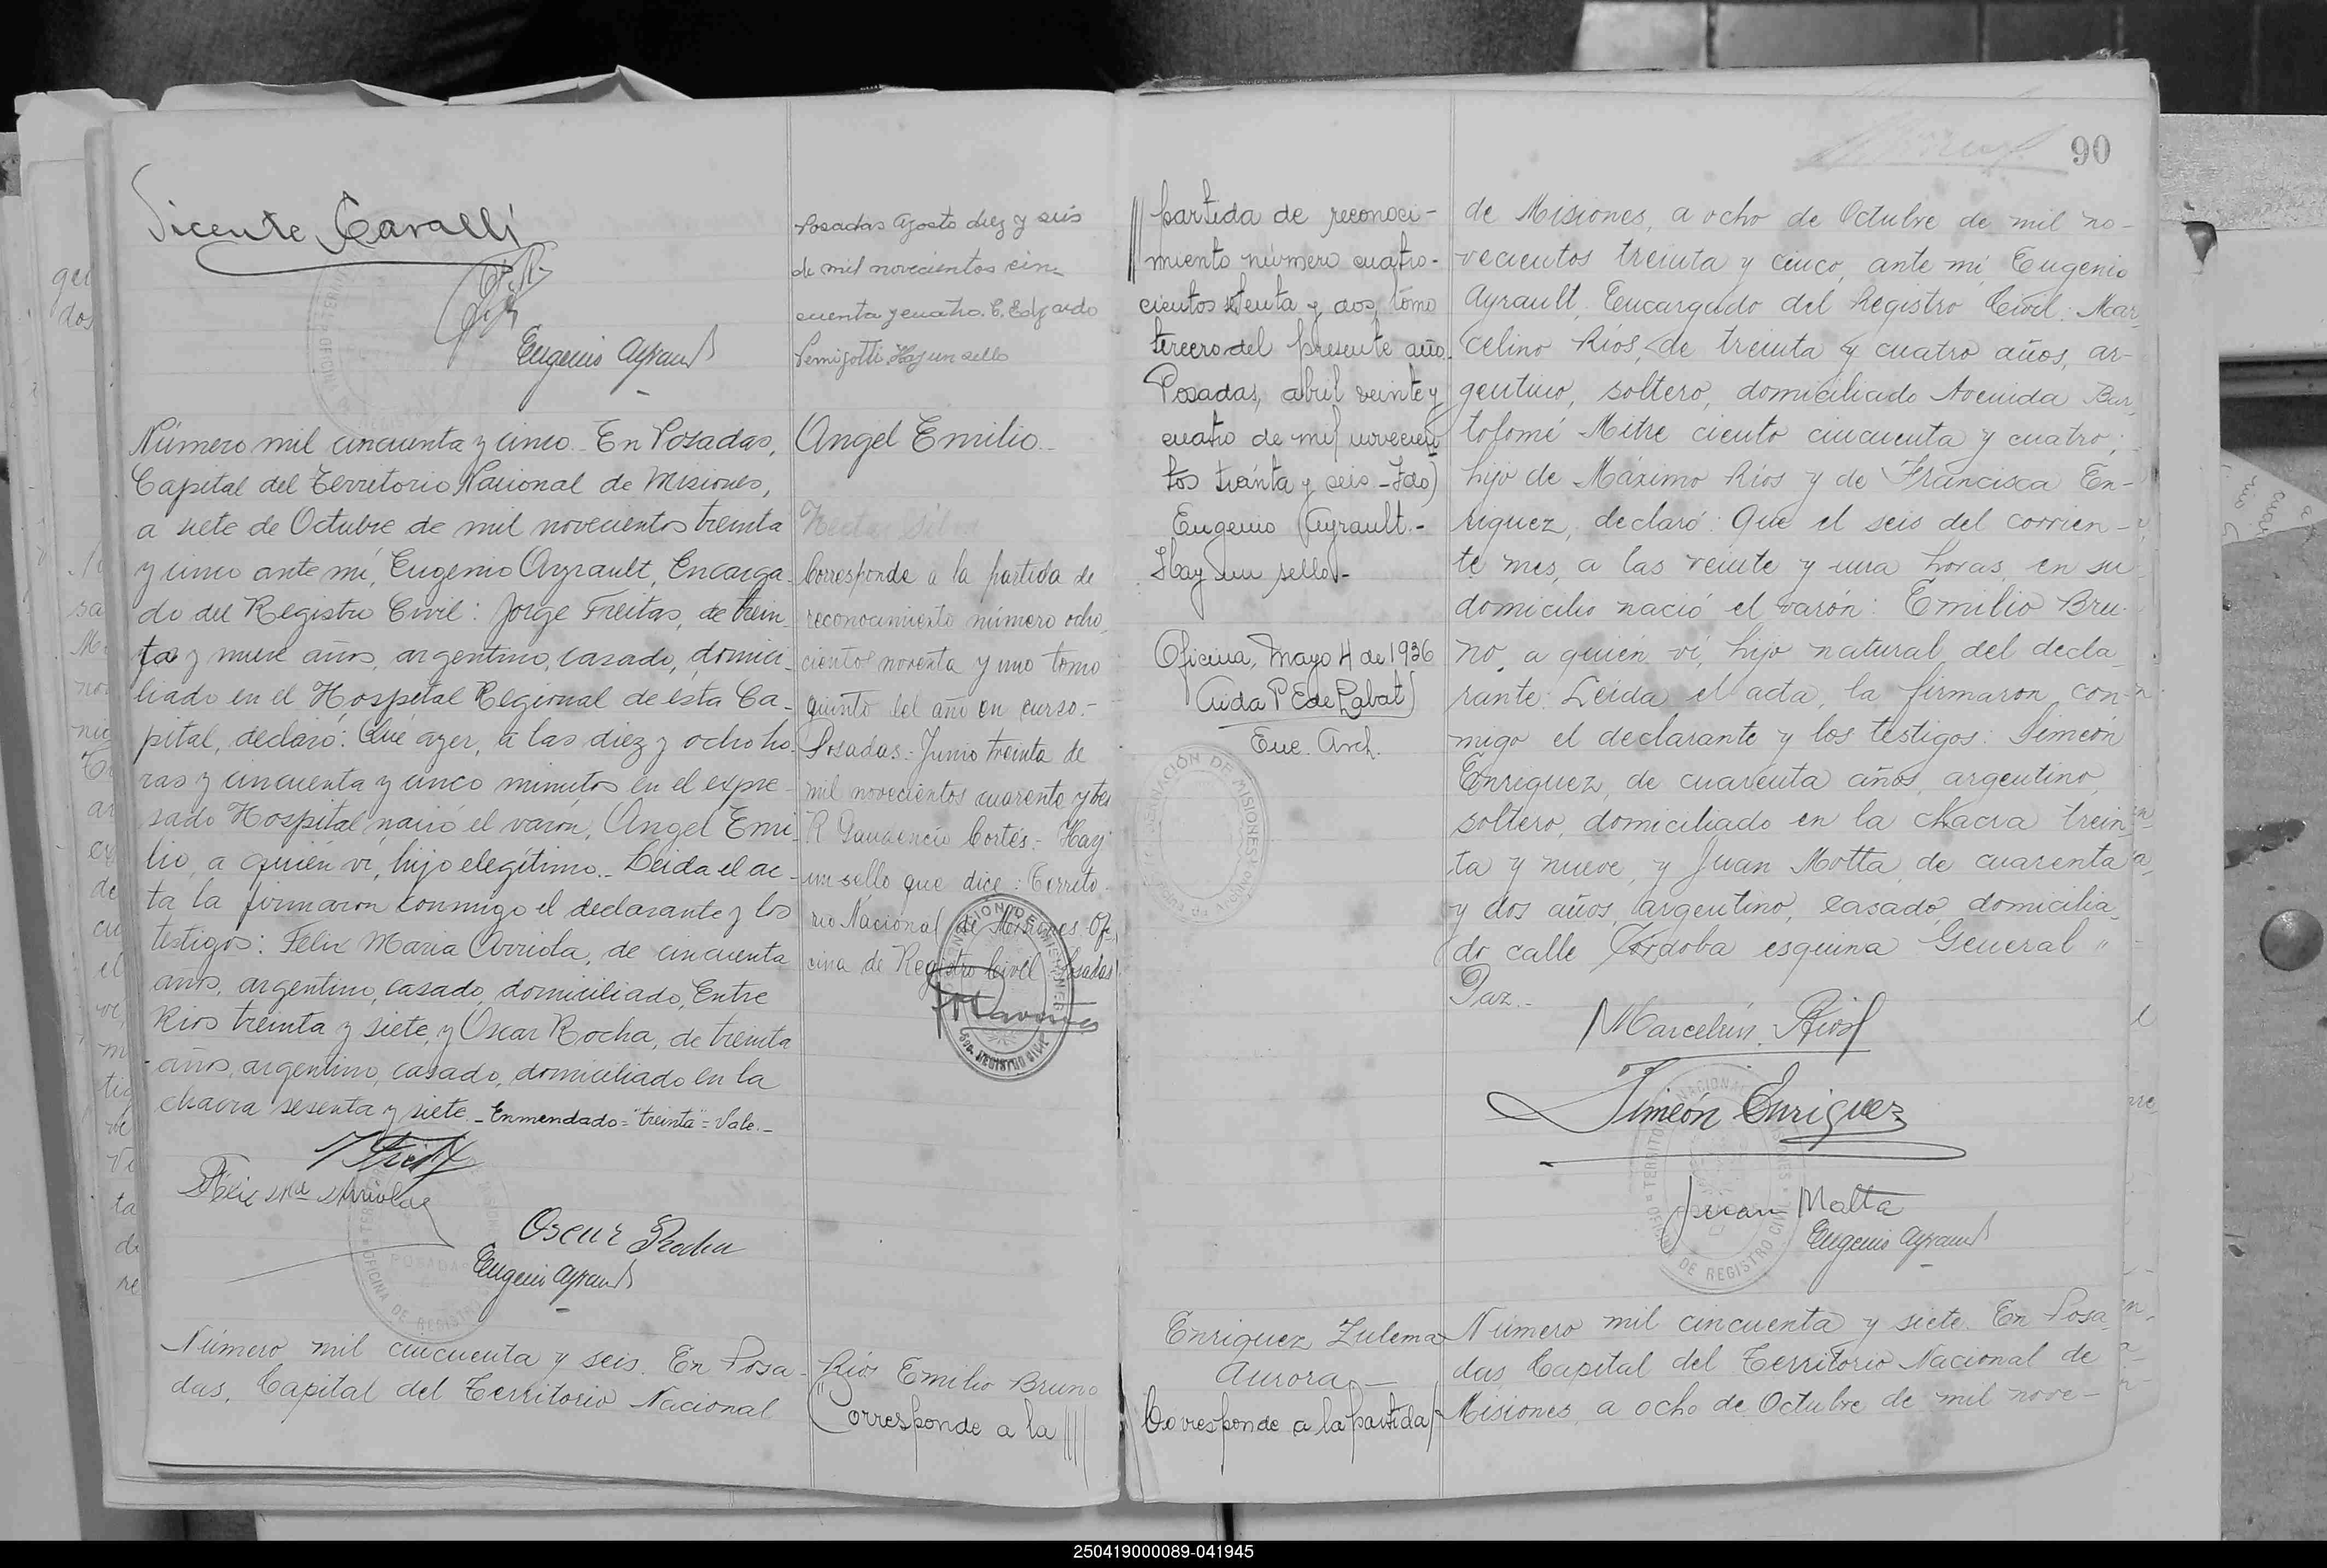 Vicente Cavalli
Eugenio Ayrault
Posadas Agosto diez y seis
de mil novecientos cin-
cuenta y cuatro. C. Edgardo
Hay un sello
Número mil cincuenta y cinco. En Posadas,
Capital del Territorio Nacional de Misiones,
a siete de Octubre de mil novecientos treinta
y cinco ante mí, Eugenio Ayrault, Encarga-
do del Registro Civil: Jorge Freitas, de trein-
ta y nueve años, argentino, casado, domici-
liado en el Hospital Regional de esta Ca-
pital, declaró: Que ayer, a las diez y ocho ho-
ras y cincuenta y cinco minutos en el expre-
sado Hospital nació el varón, Angel Emi-
lio, a quién ví, hijo elegítimo.- Leida el ac-
ta la firmaron conmigo el declarante y los
testigos: Felix Maria Arriola, de cincuenta
años, argentino, casado, domiciliado, Entre
Rios treinta y siete, y Oscar Rocha, de treinta
años, argentino, casado, domiciliado en la
chacra sesenta y siete.- Enmendado="treinta"=Vale.-
Felix Ma Arriola
Oscar Rocha
Eugenio Ayrault
Angel Emilio.-
Corresponde a la partida de
reconocimiento número ocho
cientos noventa y uno tomo
quinto del año en curso.-
Posadas.- Junio treinta de
mil novecientos cuarenta y tres
R Gaudencio Cortés.- Hay
un sello que dice: Territo-
rio Nacional de Misiones Ofi-
cina de Registro Civil - Posadas
Número mil cincuenta y seis. En Posa-
das, Capital del Territorio Nacional
Ríos Emilio Bruno
Corresponde a la
90
partida de reconoci-
miento número cuatro-
cientos setenta y dos, tomo
tercero del presente año.
Posadas, abril veinte y
cuatro de mil novecien
tos treinta y seis - Fdo)
Eugenio Ayrault.-
Hay un sello.-
Oficina, Mayo 4 de 1936
Aida P E de Labat
Enc. Arch.
de Misiones, a ocho de Octubre de mil no-
vecientos treinta y cinco, ante mí Eugenio
Ayrault, Encargado del Registro Civil: Mar-
celino Ríos, de treinta y cuatro años, ar-
gentino, soltero, domiciliado Avenida Bar-
tolomé Mitre ciento cincuenta y cuatro;
hijo de Máximo Ríos y de Francisca En-
riquez, declaró: Que el seis del corrien-
te mes, a las veinte y una horas, en su
domicilio nació el varón: Emilio Bru-
no, a quién ví, hijo natural del decla-
rante. Leída el acta, la firmaron con-
migo el declarante y los testigos: Simeón
Enriquez, de cuarenta años, argentino,
soltero, domiciliado en la chacra trein-
ta y nueve, y Juan Motta, de cuarenta
y dos años, argentino, casado, domicilia-
do calle Córdoba esquina General "
Paz.-
Marcelino Ríos
Simeón Enriquez
Juan Motta
Eugenio Ayrault
Enriquez Zulema
Aurora.-
Corresponde a la partida
Número mil cincuenta y siete. En Posa-
das Capital del Territorio Nacional de
Misiones, a ocho de Octubre de mil nove-
250419000089-041945